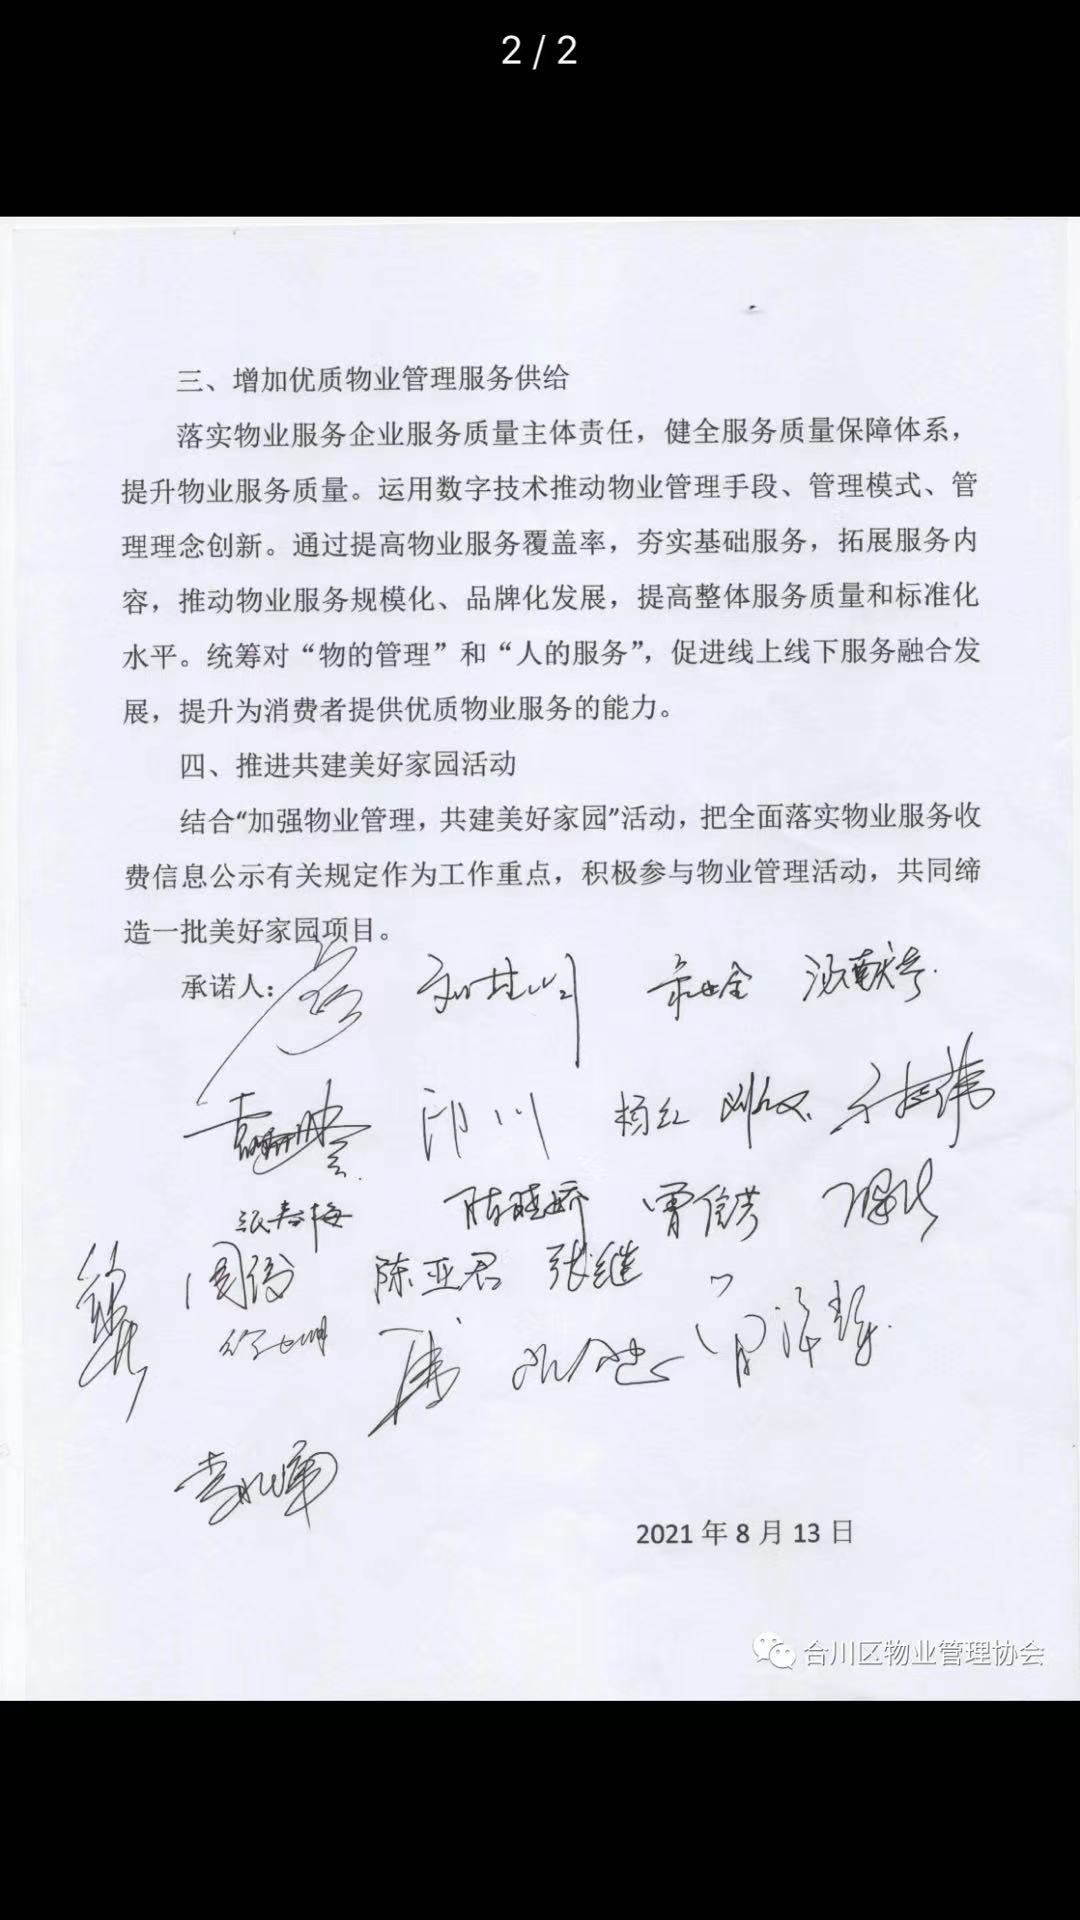 2 / 2
三、增加优质物业管理服务供给
落实物业服务企业服务质量主体责任，健全服务质量保障体系，
提升物业服务质量。运用数字技术推动物业管理手段、管理模式、管
理理念创新。通过提高物业服务覆盖率，夯实基础服务，拓展服务内
容，推动物业服务规模化、品牌化发展，提高整体服务质量和标准化
水平。统筹对“物的管理”和“人的服务”，促进线上线下服务融合发
展，提升为消费者提供优质物业服务的能力。
四、推进共建美好家园活动
结合“加强物业管理，共建美好家园”活动，把全面落实物业服务收
费信息公示有关规定作为工作重点，积极参与物业管理活动，共同缔
造一批美好家园项目。
承诺人：
杨红
张春梅 陈晓娇
陈亚君 张继
2021 年 8 月 13 日
合川区物业管理协会